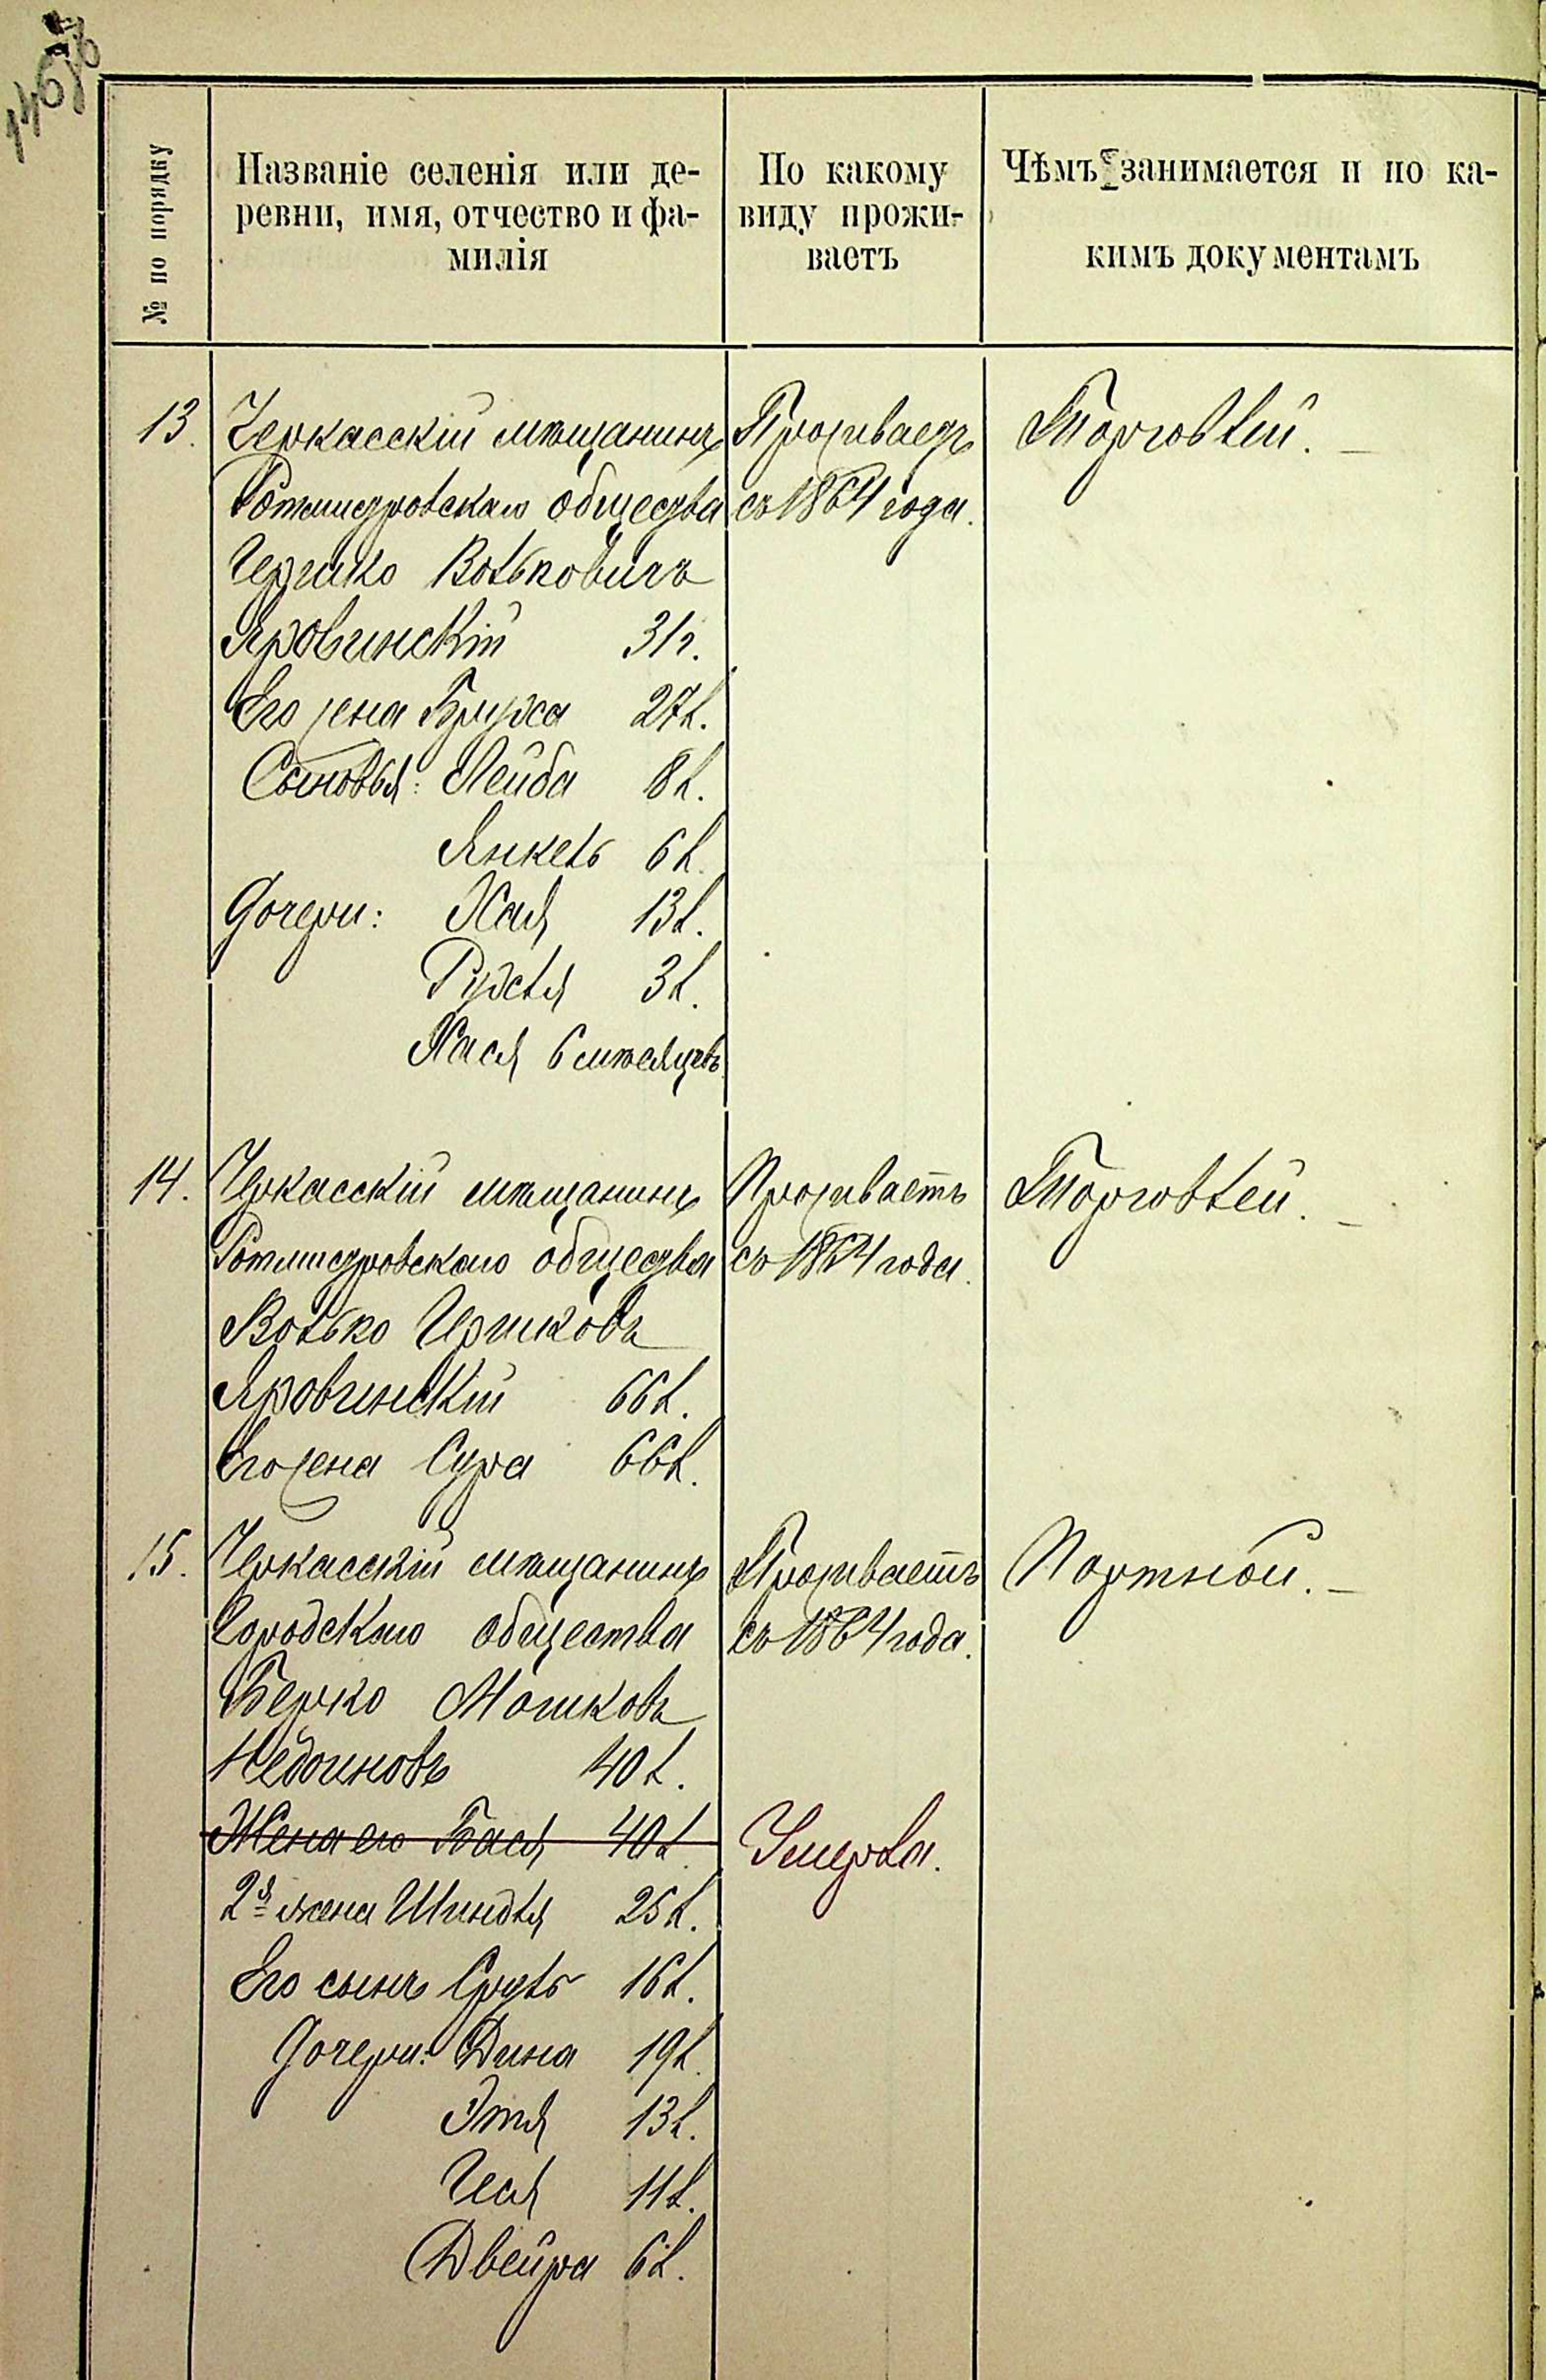 № по порядку
Названіе селенія или де-
ревни, имя, отчество и фа-
милія
По какому
виду прожи-
ваетъ
Чѣмъ занимается и по ка-
кимъ документамъ
13. Черкасскій мѣщанинъ Проживаетъ Торговлей.
Ротмистровскаго общества съ 1864 года.
Гершко Вольковичъ
Яровинскій 31 г.
Его жена Бруха 27 л.
Сыновья: Лейба 8 л.
Янкель 6 л.
Дочери: Хая 13 л.
Рухля 3 л.
Хася 6 мѣсяцевъ
14. Черкасскій мѣщанинъ Проживаетъ Торговлей.
Ротмистровскаго общества съ 1864 года.
Волько Гершковъ
Яровинскій 66 л.
Его жена Сура 66 л.
15. Черкасскій мѣщанинъ Проживаетъ Портной.
Городского общества съ 1864 года.
Берко Мошковъ
40 л.
Жена его Бася 40 л. Умерла.
2я жена Шиндля 25 л.
Его сынъ Сруль 16 л.
Дочери: Дина 19 л.
Этя 13 л.
11 л.
Двейра 6 л.